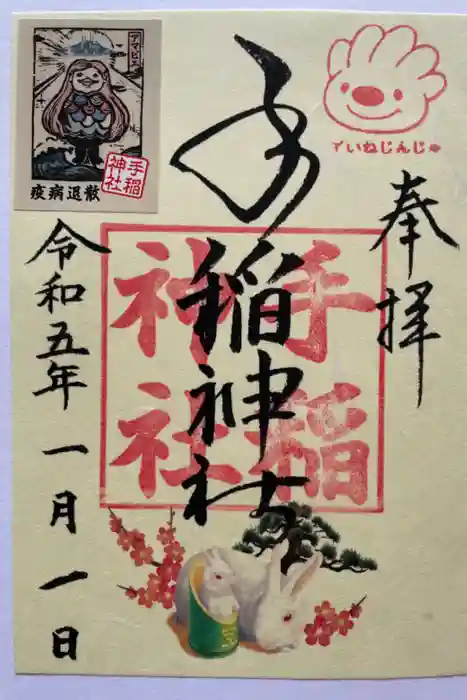 ていねじんじゃ
奉拝
手稲神社
手稲
神社
令和五年 一月 一日
アマビエ
疫病退散
手稲
神社